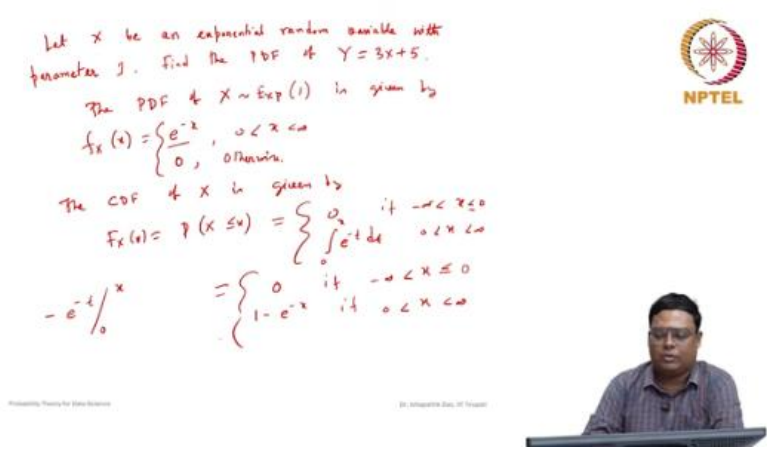 Let X be an exponential random variable with
parameter 1. Find the PDF of Y = 3X+5.
The PDF of X ~ Exp(1) is given by
fx(x) = { e^-x, 0<x<∞
0, otherwise.
The CDF of X is given by
Fx(x) = P(X ≤ x) = { 0 if -∞<x≤0
∫_0^x e^-t dt 0<x<∞
= { 0 if -∞<x≤0
1-e^-x if 0<x<∞
-e^-t |_0^x
NPTEL
Probability Theory for Data Science